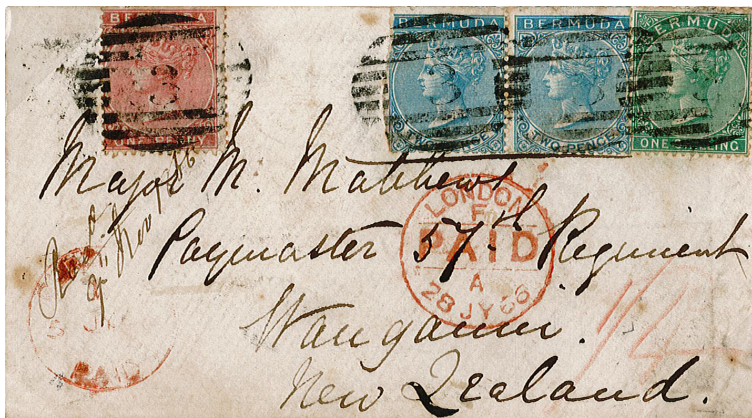 BERMUDA
ONE PENNY
BERMUDA
TWO PENCE
BERMUDA
TWO PENCE
BERMUDA
ONE SHILLING
Major M. Matthews
Paymaster 57th Regiment
Wanganui.
New Zealand.
LONDON
F
PAID
A
28 JY 66
PAID